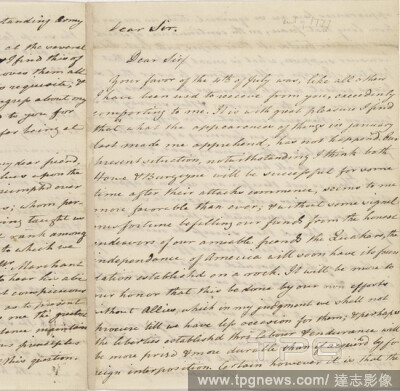 standing Army
at the several
& I find this of
oves them all
requisite, &
ngage about my
to you for
for being at
my dear friend,
upon the
triumphed over
; whom por-
ving taught us
rank among
to which we
Mr. Marchant
to have been able
conspicuous
as to prevent
me the gentn
some injunction
principles
this question.
Dear Sir.
Dear Sir
Your favor of the 4th of July was, like all others
I have been used to receive from you, exceedingly
comforting to me. It is with great pleasure I find
that what the appearances of things in January
last made me apprehend, has not happend. Our
present situation, notwithstanding I think both
Howe & Burgoyne will be successful for some
time after their attacks commence, seems to me
more favorable than ever; & without some signal
misfortune befitting our funds from the honest
endeavors of our amiable friends the Quakers, the
independance of America will soon have its foun-
dation established on a rock. It will be more to
our honor that this be done by our own efforts
without Allies, which in my judgment we shall not
procure till we have less occasion for them; & perhaps
the liberties established thro labour & endurance will
be more prized & more durable than acquired by fo-
reign interposition. Certain however it is that the
TPG
www.tpgnews.com / 達志影像